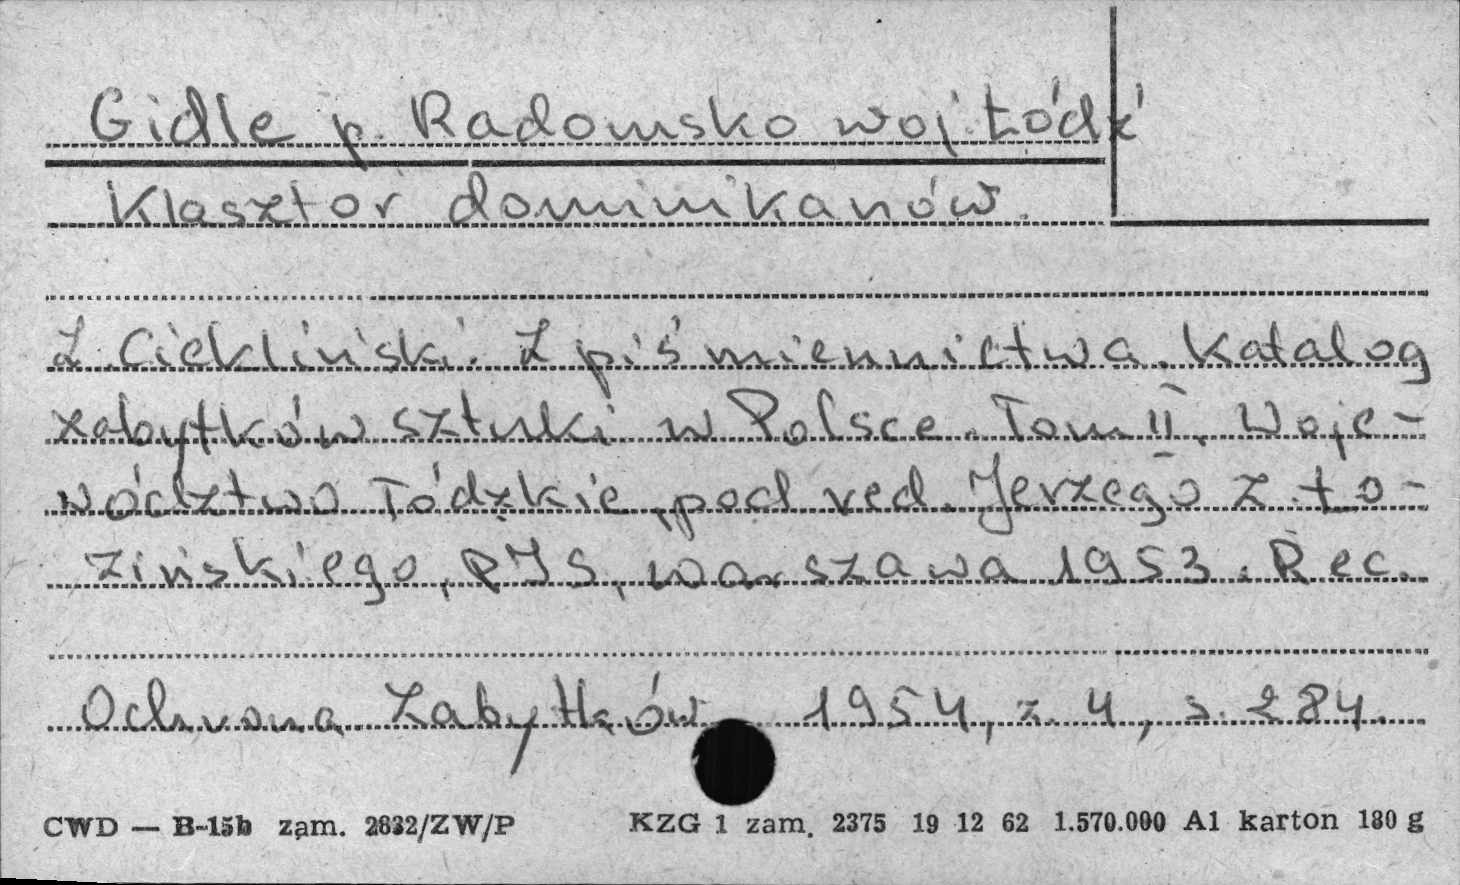 Gidle p. Radomsko woj. Łódź
Klasztor dominikanów.
Z. Ciekliński. Z piśmiennictwa. Katalog
zabytków sztuki w Polsce. Tom II. Woje-
wództwo łódzkie, pod red. Jerzego Z. Ło-
zińskiego, PIS, Warszawa 1953. Rec.
Ochrona Zabytków 1954, z. 4, s. 284.
CWD — B-15b zam. 2832/ZW/P KZG 1 zam. 2375 19 12 62 1.570.000 A1 karton 180 g